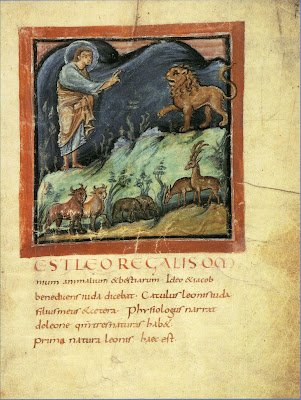 EST LEO REGALIS OM
nium animalium & bestiarum · Ideo & iacob
benedicens iuda dicebat · Catulus leonis iuda
filius meus & cetera · Physiologus narrat
de leone qm tres naturas hab&
prima natura leonis haec est ·